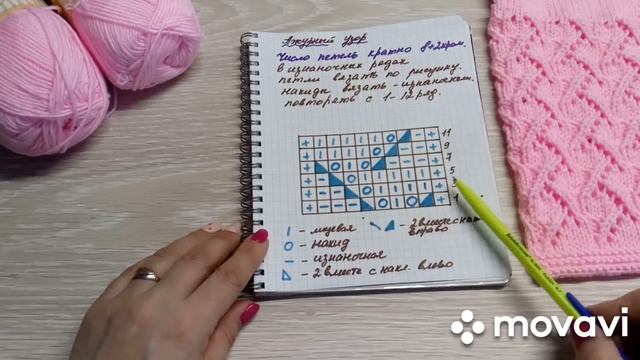 Ажурный узор
Число петель кратно 8+2кром.
В изнаночных рядах
петли вязать по рисунку.
накиды вязать - изнаночн.
повторять с 1-12 ряд.
11
9
7
5
3
1
| - лицевая
O - накид
— - изнаночная
- 2 вместе с накл. влево
- 2 вместе с накл
вправо
movavi